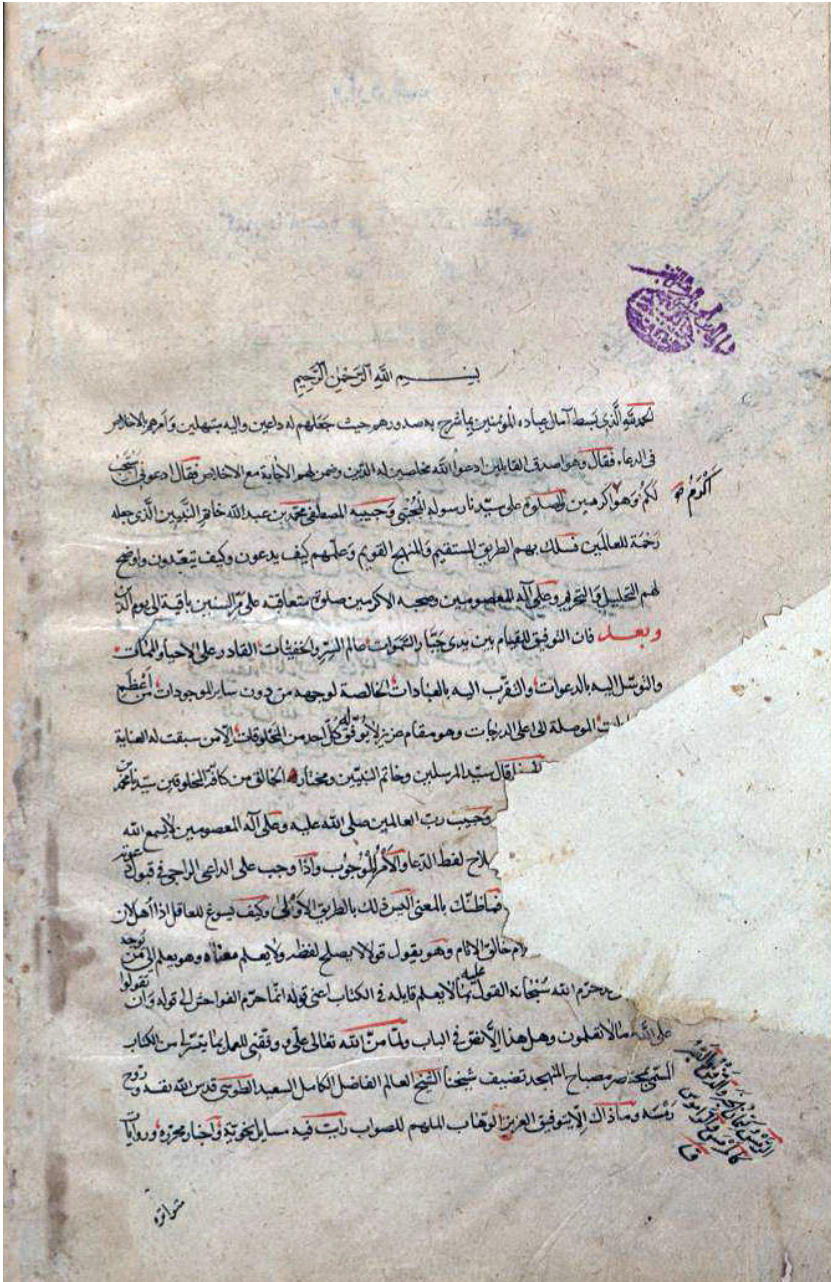 بسم الله الرحمن الرحيم
الحمد لله الذي بسط آمال عباده المؤمنين بما شرح به صدورهم حيث جعلهم له داعين واليه مبتهلين وامرهم بالاخلاص
في الدعاء فقال وهو اصدق القايلين ادعوا الله مخلصين له الدين وضمن لهم الاجابة مع الاخلاص فقال ادعوني استجب
لكم وهو اكرمين والصلوة على سيدنا رسوله المجتبى وحبيبه المصطفى محمد بن عبد الله خاتم النبيين الذي جعله
اكرم
رحمة للعالمين فسلك بهم الطريق المستقيم والمنهج القويم وعلمهم كيف يدعون وكيف يتعبدون واوضح
لهم التحليل والتحريم وعلى آله المعصومين وصحبه الاكرمين صلوة متعاقبة على مر السنين باقية الى يوم الدين
وبعد فان التوفيق للقيام بين يدى جبار السموات عالم السر والخفيات القادر على الاحياء والممات
والتوسل اليه بالدعوات والتقرب اليه بالعبادات الخالصة لوجهه من دون ساير الموجودات من اعظم
الموصلة الى اعلى الدرجات وهو مقام عزيز لا يوفق له كل احد من المخلوقات الا من سبقت له العناية
قال سيد المرسلين وخاتم النبيين ومختار الخالق من كافة المخلوقين سيدنا محمد
وحبيب رب العالمين صلى الله عليه وعلى آله المعصومين لا يسمع الله
لفظ الدعا والامر للوجوب واذا وجب على الداعى الراجى في قبول دعوته
فما ظنك بالمعنى اليس ذلك بالطريق الاولى وكيف يسوغ للعاقل اذا اهل لان
خالق الانام وهو يقول قولا لا يصلح لفظه ولا يعلم معناه وهو يعلم الى من توجه
حرم الله سبحانه القول بما لا يعلم قايله في الكتاب اعنى قوله انما حرم الفواحش الى قوله وان تقولوا
على الله ما لا تعلمون وهل هذا الا نص في الباب ولما من الله تعالى على ووفقنى للعمل بما يتسر من الكتاب
المسمى بمختصر مصباح المتهجد تصنيف شيخنا الشيخ العالم الفاضل الكامل السعيد الطوسى قدس الله نفسه وروح
رمسه وما ذاك الا بتوفيق العزيز الوهاب الملهم للصواب رايت فيه مسايل نحوية واخبار محررة وروايات
متواترة